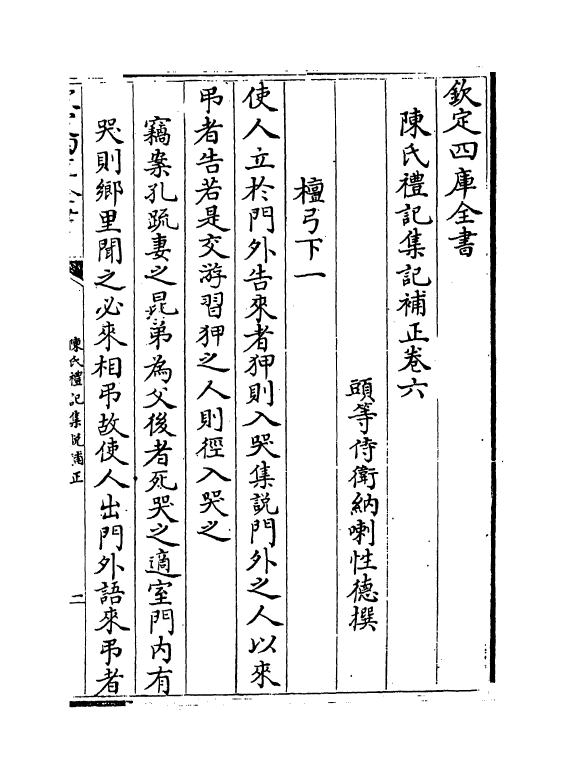 欽定四庫全書
陳氏禮記集記補正卷六
頭等侍衛納喇性德撰
檀弓下一
使人立於門外告來者狎則入哭集説門外之人以來
弔者告若是交游習狎之人則徑入哭之
竊案孔疏妻之昆弟為父後者死哭之適室門内有
哭則鄉里聞之必來相弔故使人出門外語來弔者
陳氏禮記集説補正